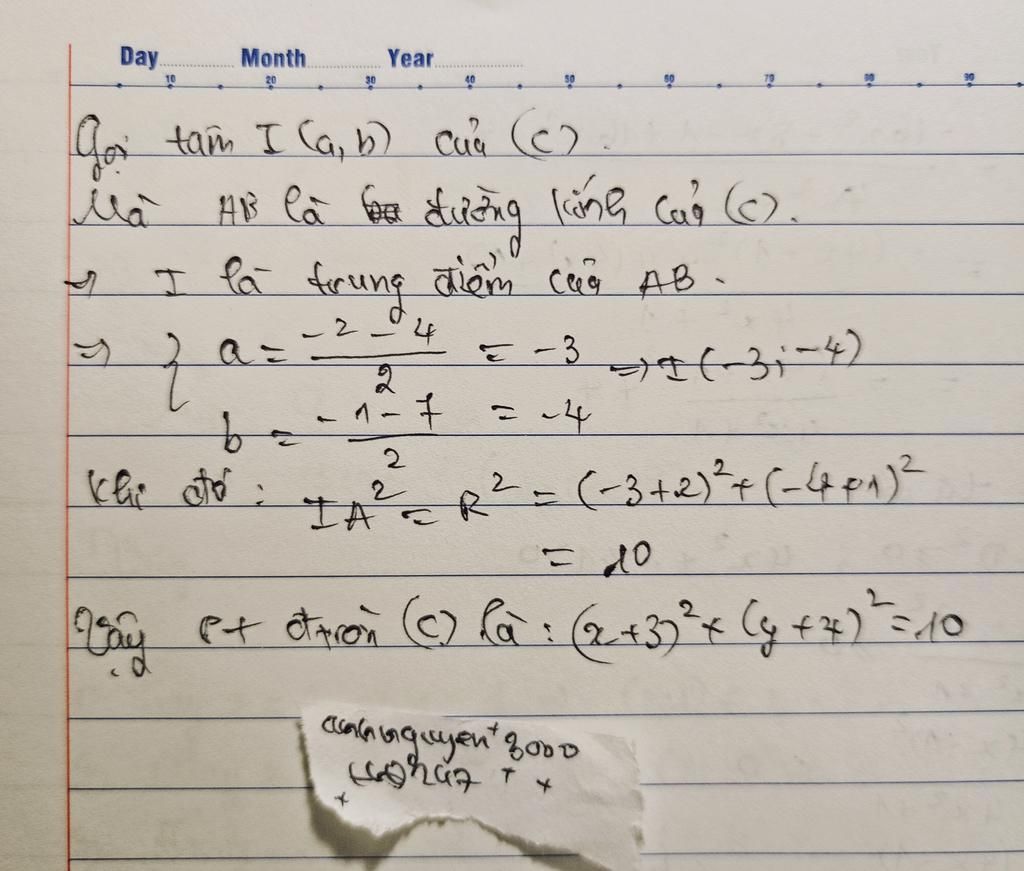 Day Month Year
10 20 30 40 50 60 70 80 90
Gọi tâm I (a, b) của (C).
Mà AB là đường kính của (C).
→ I là trung điểm của AB.
⇒ { a = (-2 - 4)/2 = -3 ⇒ I (-3; -4)
b = (-1 - 7)/2 = -4
Khi đó: IA² = R² = (-3+2)² + (-4+1)²
= 10
Vậy pt đtròn (C) là: (x+3)² + (y+4)² = 10
anhnguyen 3000